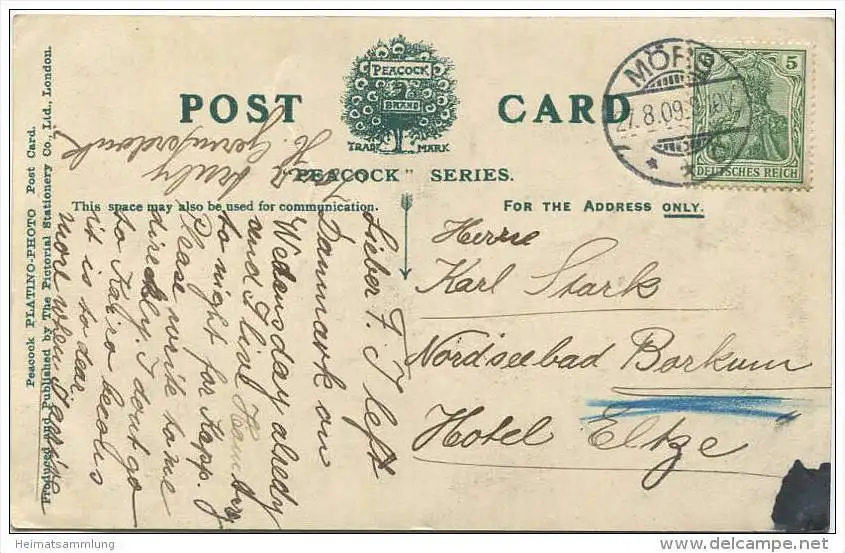 POST CARD
PEACOCK
BRAND
TRADE MARK
"PEACOCK" SERIES.
This space may also be used for communication.
FOR THE ADDRESS ONLY.
Peacock PLATINO-PHOTO Post Card.
Produced and Published by The Pictorial Stationery Co., Ltd., London.
27.8.09
5
DEUTSCHES REICH
Herrn
Karl Stark
Nordseebad Borkum
Hotel Eltze
Lieber F. I left
Danmark on
Wedensday alredy
and I live Hamburg
to night for Kopp.
Please write to me
direckly. I dont go
to
it is to dear
more when
truly
Heimatsammlung
www.delcampe.net